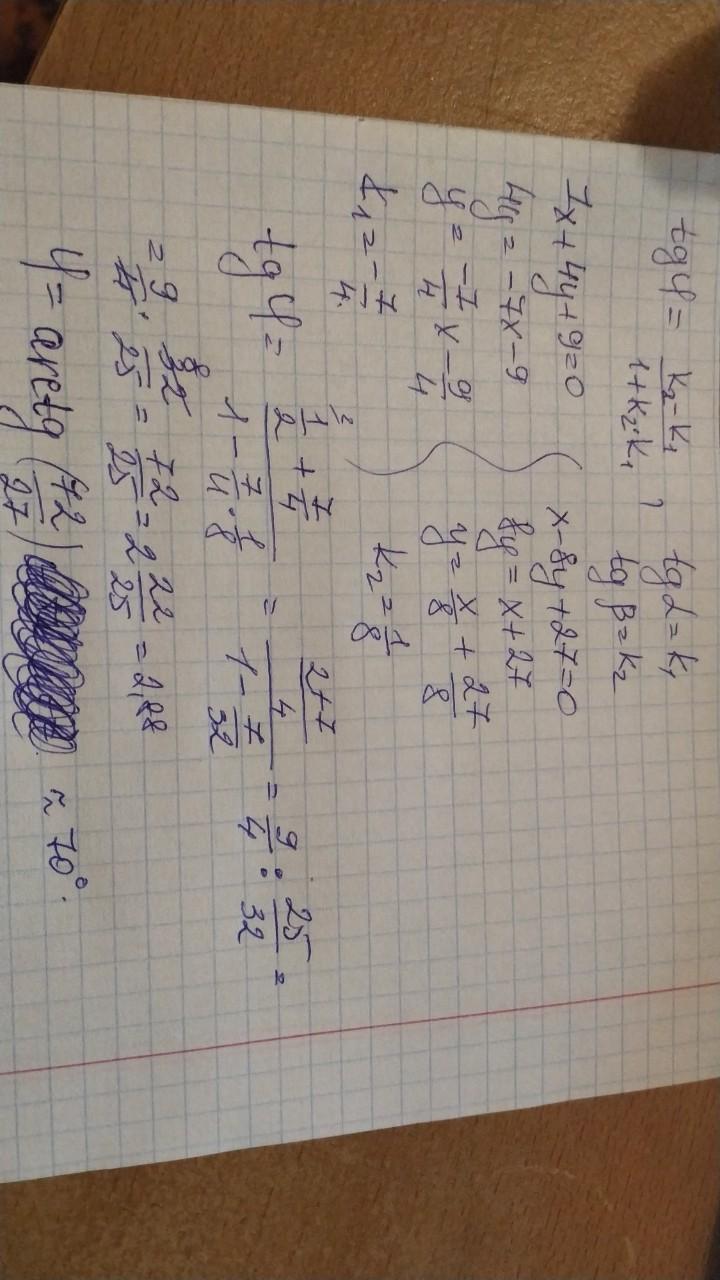 tg φ = k₂-k₁ / 1+k₂·k₁ , tg α = k₁
tg β = k₂
7x+4y+9=0 x-8y+27=0
4y = -7x-9 8y = x+27
y = -7/4 x - 9/4 y = x/8 + 27/8
k₁ = -7/4. k₂ = 1/8
tg φ = (1/2 ² + 7/4) / (1 - 7/4 · 1/8) = ((2+7)/4) / (1 - 7/32) = 9/4 : 25/32 =
= 9/4 · 32/25 = 72/25 = 2 22/25 = 2,88
φ = arctg (72/27) ≈ 70°.